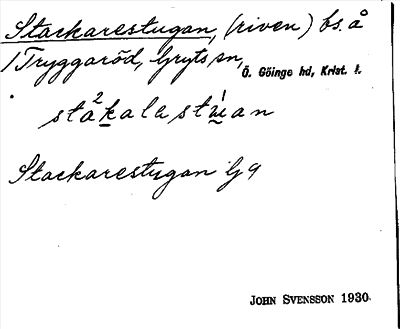 Stackarestugan, (riven) bs. å
/Tryggaröd, Gryts sn,
Ö. Göinge hd, Krist. l.
sta²kalastu̱an
Stackarestugan G 9
JOHN SVENSSON 1930.